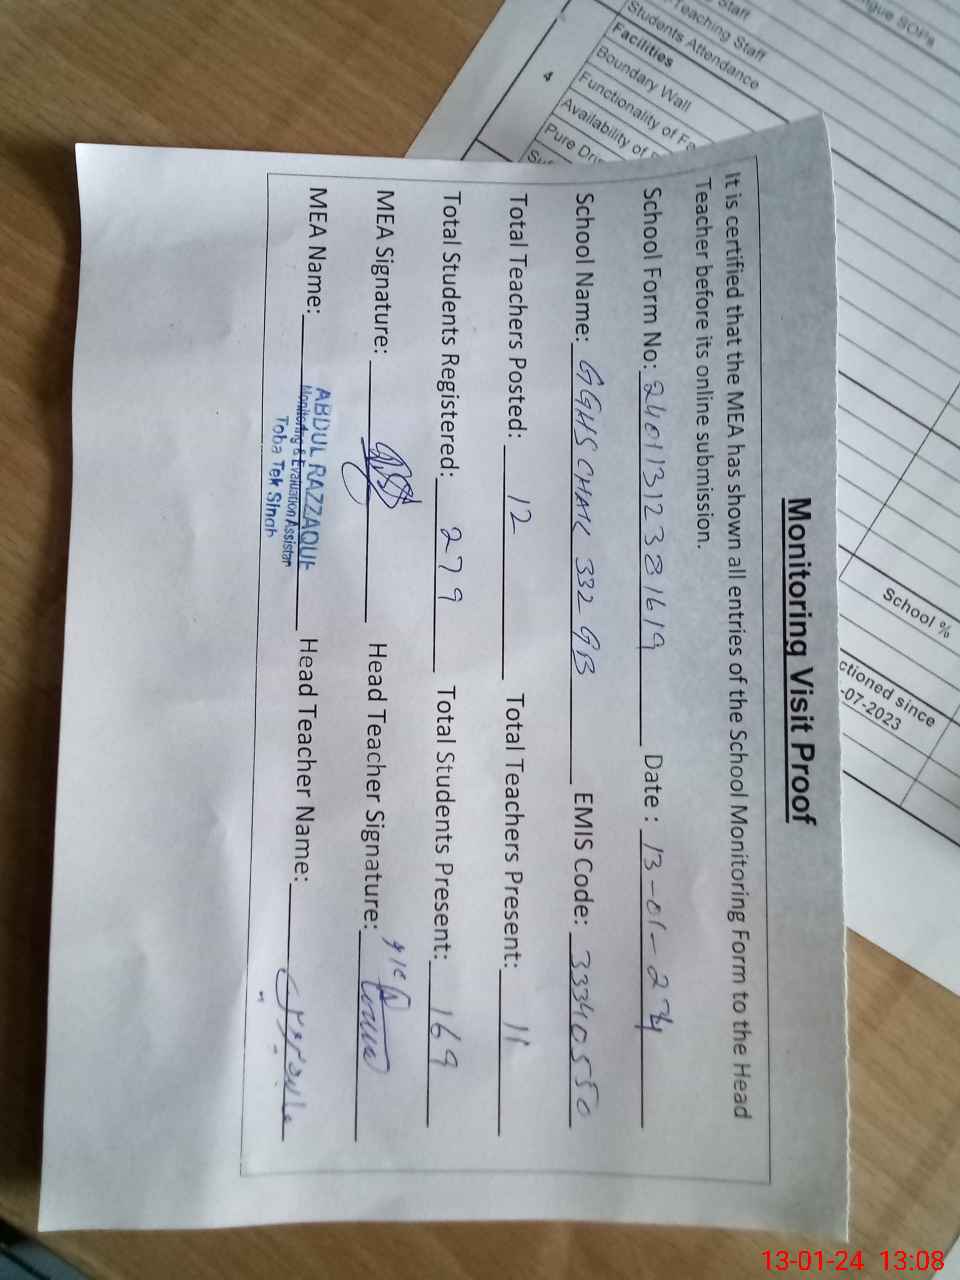 Monitoring Visit Proof
It is certified that the MEA has shown all entries of the School Monitoring Form to the Head
Teacher before its online submission.
School Form No: 24011312381619 Date : 13-01-24
School Name: GGHS CHAK 332 GB EMIS Code: 33340550
Total Teachers Posted: 12 Total Teachers Present: 11
Total Students Registered: 279 Total Students Present: 169
MEA Signature: Head Teacher Signature:
MEA Name: ABDUL RAZZAQUE Head Teacher Name:
Monitoring & Evaluation Assistan
Toba Tek Singh
Staff
Teaching Staff
Students Attendance
4
Facilities
Boundary Wall
Functionality of Fa
Availability of
Pure Dri
SOPs
School %
ctioned since
-07-2023
13-01-24 13:08